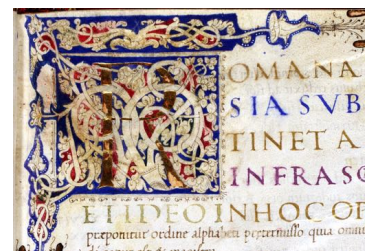 ROMANA
SIA SVB
TINET A
INFRASC
ET IDEO IN HOC OP
præponitur ordine alphabeti prætermisso quia omniu